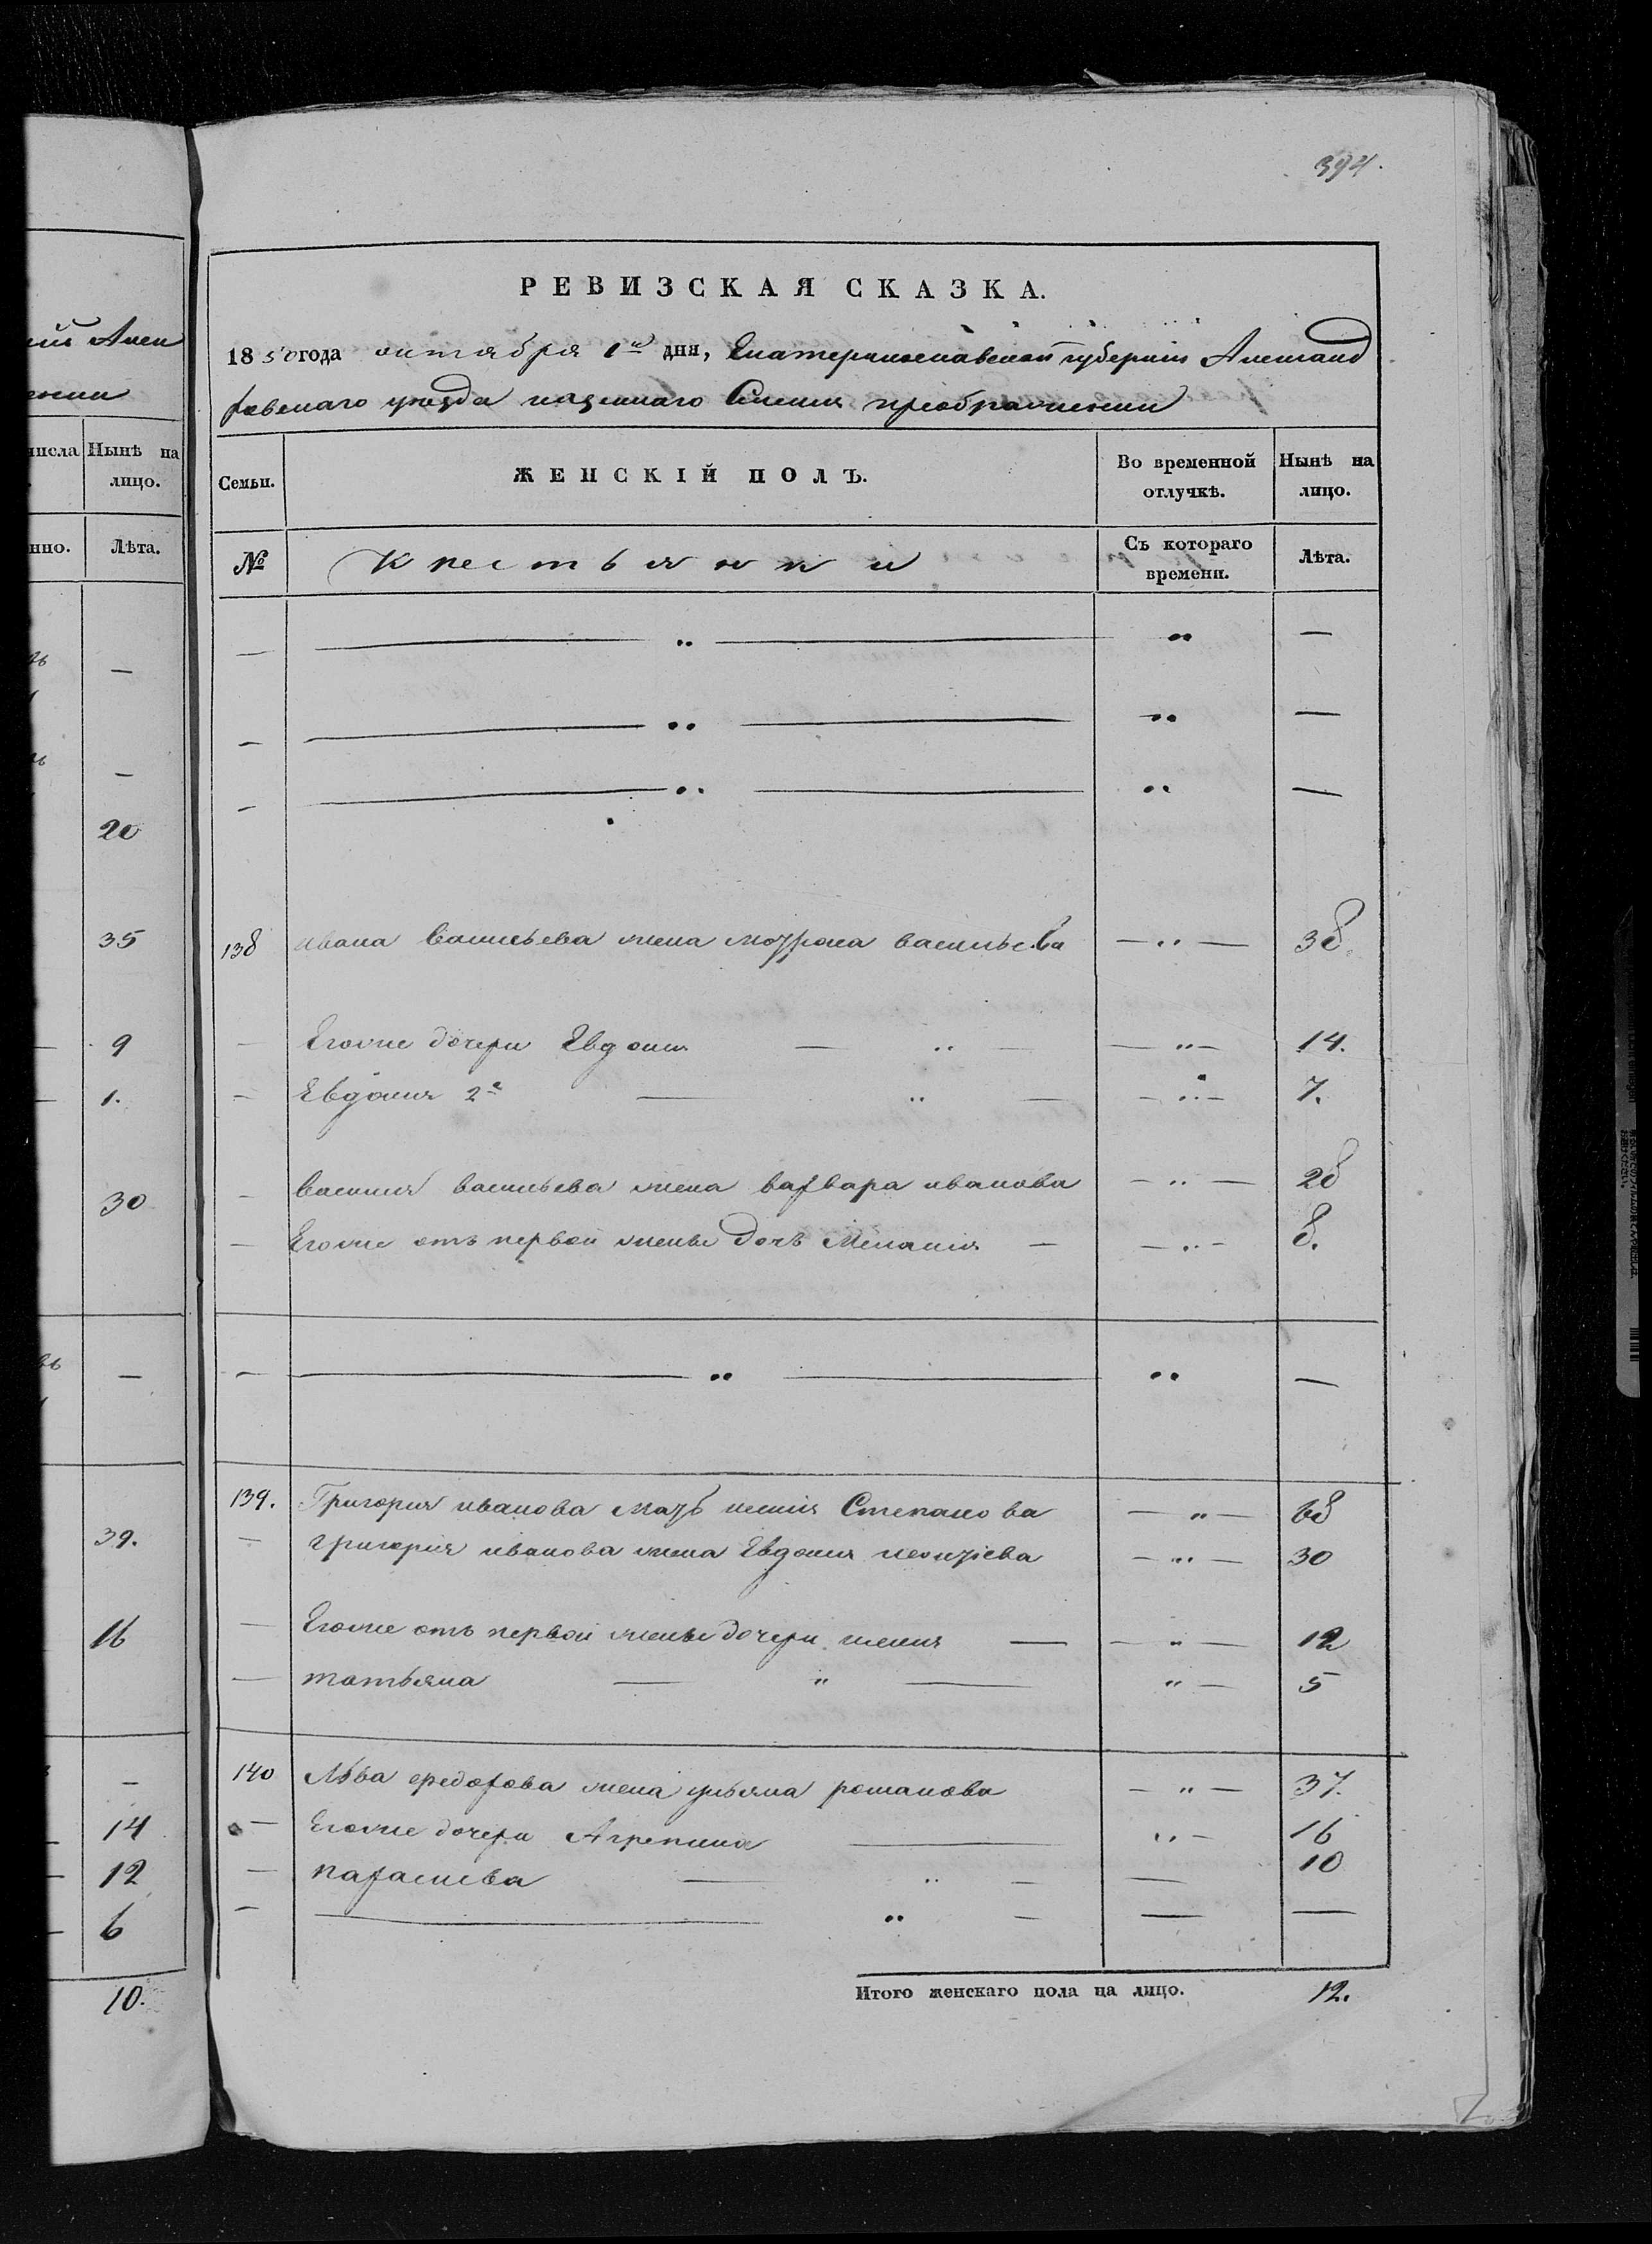 394.
РЕВИЗСКАЯ СКАЗКА.
1850 года октября 1го дня, Екатеринославской губерніи Александ
ровскаго уезда казеннаго Селенія преображенки
Семьи.
ЖЕНСКІЙ ПОЛЪ.
Во временной отлучкѣ.
Нынѣ на лицо.
№
Крестьянки
Съ котораго времени.
Лѣта.
— — „ — „ —
— — „ — „ —
— — „ — „ —
138 ивана васильева жена мотрона васильева — „ — 38.
— Егоже дочери Евдокия — „ — — „ — 14.
— Евдокия 2я — „ — — „ — 7.
— василия васильева жена варвара иванова — „ — 28
— Егоже отъ первой жены дочь Меланія — — „ — 8.
— — „ — „ —
139. Григория иванова мать ксенія Степанова — „ — 68
— григорія иванова жена Евдокия — „ — 30
— Егоже отъ первой жены дочери ксения — — „ — 12
— татьяна — „ — „ — 5
140 Льва федорова жена ульяна романова — „ — 37.
— Егоже дочери Агрепина — „ — 16
— параскева — „ — — 10
— — „ — — —
Итого женскаго пола на лицо. 12.
ій Алек
числа
Нынѣ на лицо.
нно.
Лѣта.
—
—
20
35
9
1.
30
—
39.
16
—
14
12
6
10.